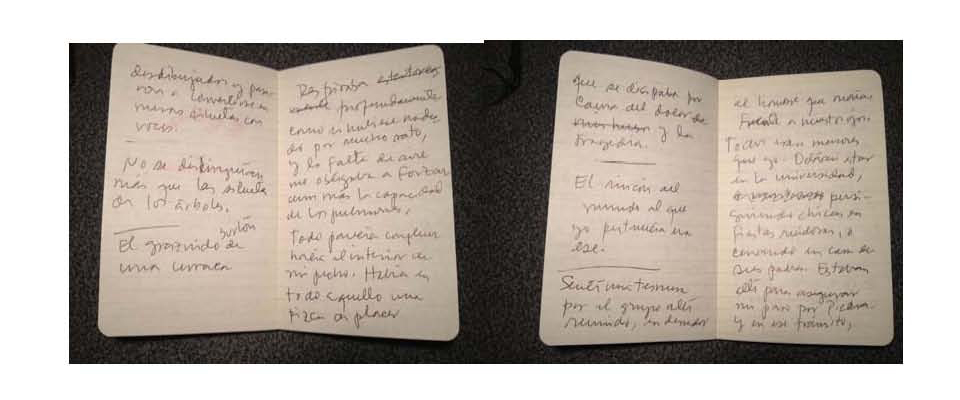 desdibujados y pasa-
ron a convertirse en
meras siluetas con
voces.
No se distinguían
más que las silueta
de los árboles.
burlón
El graznido de
una urraca
Respiraba
profundamente
como si hubiese nada-
do por mucho rato,
y la falta de aire
me obligaba a forzar
aun más la capacidad
de los pulmones,
Todo parecía confluir
hacia el interior de
mi pecho. Había en
todo aquello una
pizca de placer
que se disipaba por
causa del dolor de
y la
tragedia.
El rincón del
mundo al que
yo pertenecía era
ese.
Sentí una ternura
por el grupo allí
reunido, en derredor
al hombre que moría
frente a nuestros ojos.
Todos eran menores
que yo. Debían estar
en la universidad,
persi-
guiendo chicas en
fiestas ruidosas, o
cenando en casa de
sus padres. Estaban
allí para asegurar
mi paso por Piedra
y en ese tránsito,